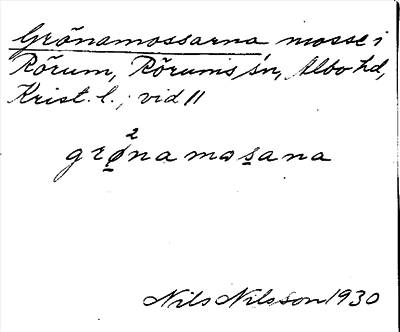 Grönamossarna mosse i
Rörum, Rörums sn, Albo hd,
Krist. l.; vid 11
²
grø̱namos̱ana
Nils Nilsson 1930